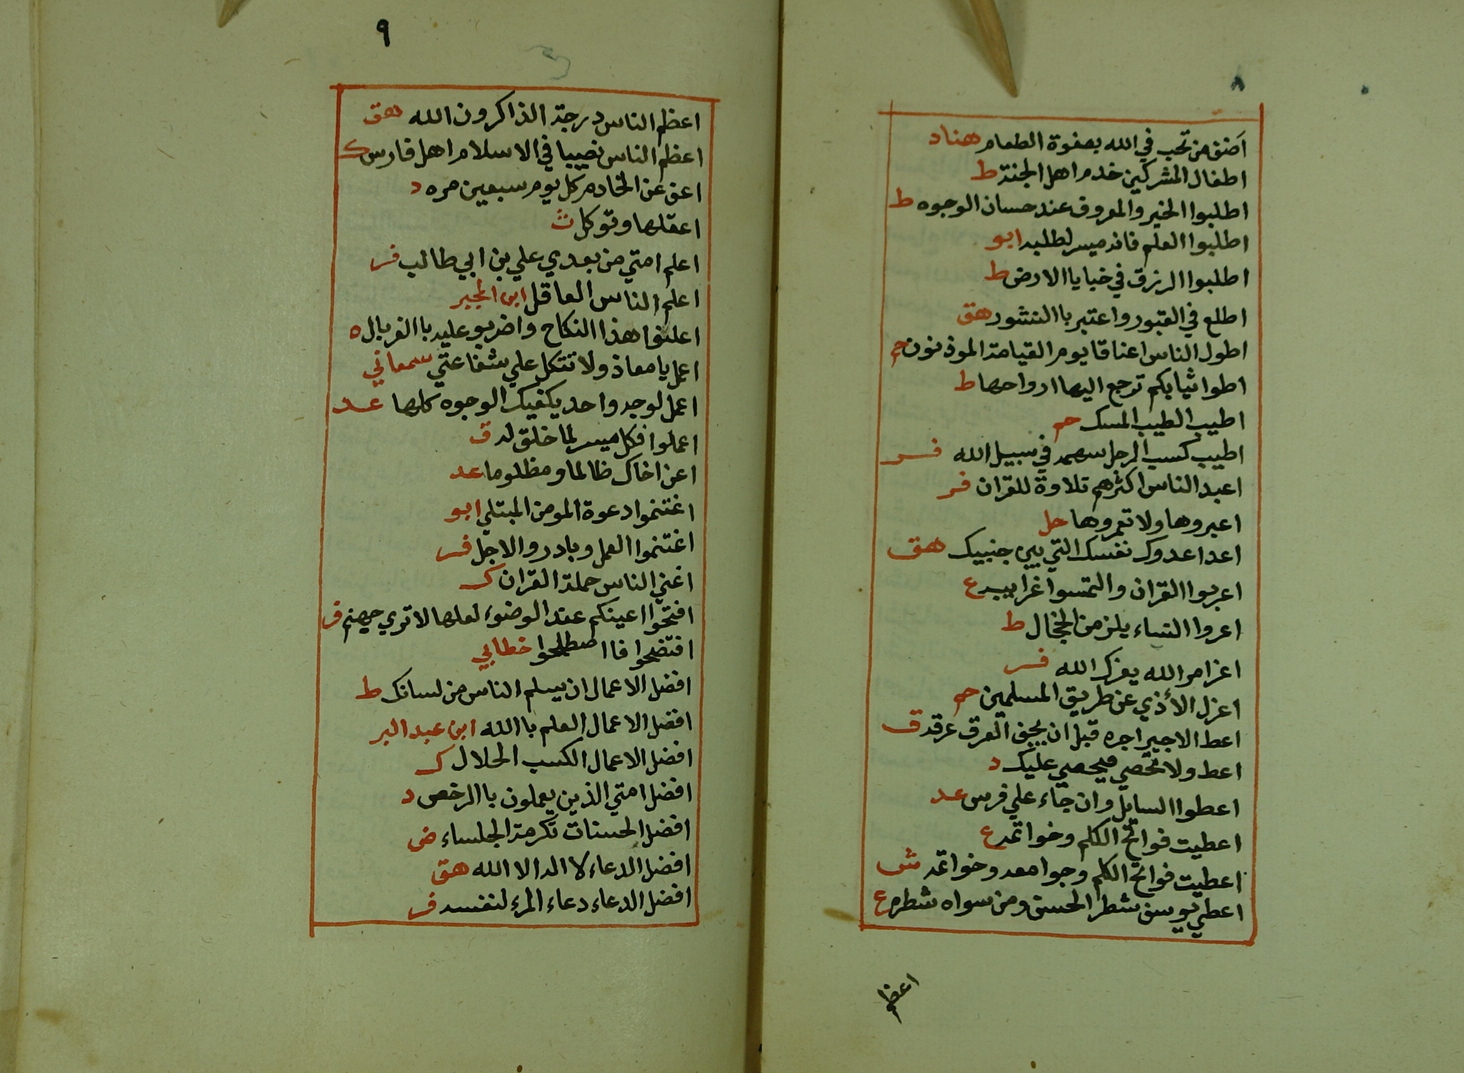 ٨
اضف من تحب في الله بصفوة الطعام هناد
اطفال المشركين خدم اهل الجنة ط
اطلبوا الخير والمعروف عند حسان الوجوه ط
اطلبوا العلم فانه ميسر لطلبه ابو
اطلبوا الرزق في خبايا الارض ط
اطلع في القبور واعتبر باالنشور هق
اطول الناس اعناقا يوم القيامة الموذنون حم
اطوا ثيابكم ترجع اليها ارواحها ط
اطيب الطيب المسك حم
اطيب كسب الرجل سهمه في سبيل الله فر
اعبد الناس اكثرهم تلاوة للقران فر
اعبروها ولا تعمروها حل
اعدا عدوك نفسك التي بين جنبيك هق
اعربوا القران والتمسوا غرايبه ع
اعروا النساء يلزمن الحجال ط
اعز امر الله يعزك الله فر
اعزل الأذي عن طريق المسلمين حم
اعط الاجير اجره قبل ان يجف العرق عرقه ق
اعط ولا تحصي فيحصي عليك د
اعطوا السايل وان جاء علي فرس عد
اعطيت فواتح الكلم وخواتمه ع
اعطيت فواتح الكلم وجوامعه وخواتمه ش
اعطي يوسف شطر الحسن ومن سواه شطره ع
اعظم
٩
اعظم الناس درجة الذاكرون الله هق
اعظم الناس نصيبا في الاسلام اهل فارس ك
اعف عن الخادم كل يوم سبعين مره د
اعقلها وتوكل ت
اعلم امتي من بعدي علي بن ابي طالب فر
اعلم الناس العاقل ابن المجبر
اعلنوا هذا النكاح واضربو عليه باالغربال ه
اعمل يا معاذ ولا تتكل علي شفاعتي سمعاني
اعمل لوجه واحد يكفيك الوجوه كلها عد
اعملوا فكل ميسر لما خلق له ق
اعن اخاك ظالما ومظلوما عد
اغتنموا دعوة المومن المبتلي ابو
اغتنموا العمل وبادروا الاجل فر
اغني الناس حملة القران ك
افتحوا اعينكم عند الوضوء لعلها لا تري جهنم فر
افتضحوا فاا صطلحوا خطابي
افضل الاعمال ان يسلم الناس من لسانك ط
افضل الاعمال العلم باالله ابن عبد البر
افضل الاعمال الكسب الحلال ك
افضل امتي الذين يعملون باالرخص د
افضل الحسنات تكرمة الجلساء ض
افضل الدعاء لا اله الا الله هق
افضل الدعاء دعاء المرء لنفسه فر